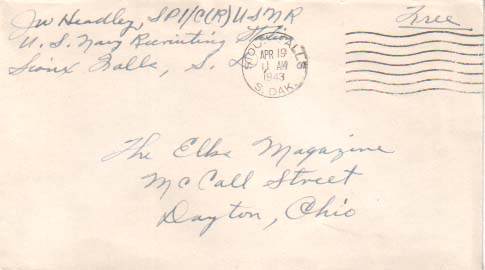 JW Headley, SP1/C(R) USNR
Free
U. S. Navy Recruiting Station
Sioux Falls, S. D.
SIOUX FALLS
APR 19
1 AM
1943
S. DAK.
The Elks Magazine
McCall Street
Dayton, Ohio